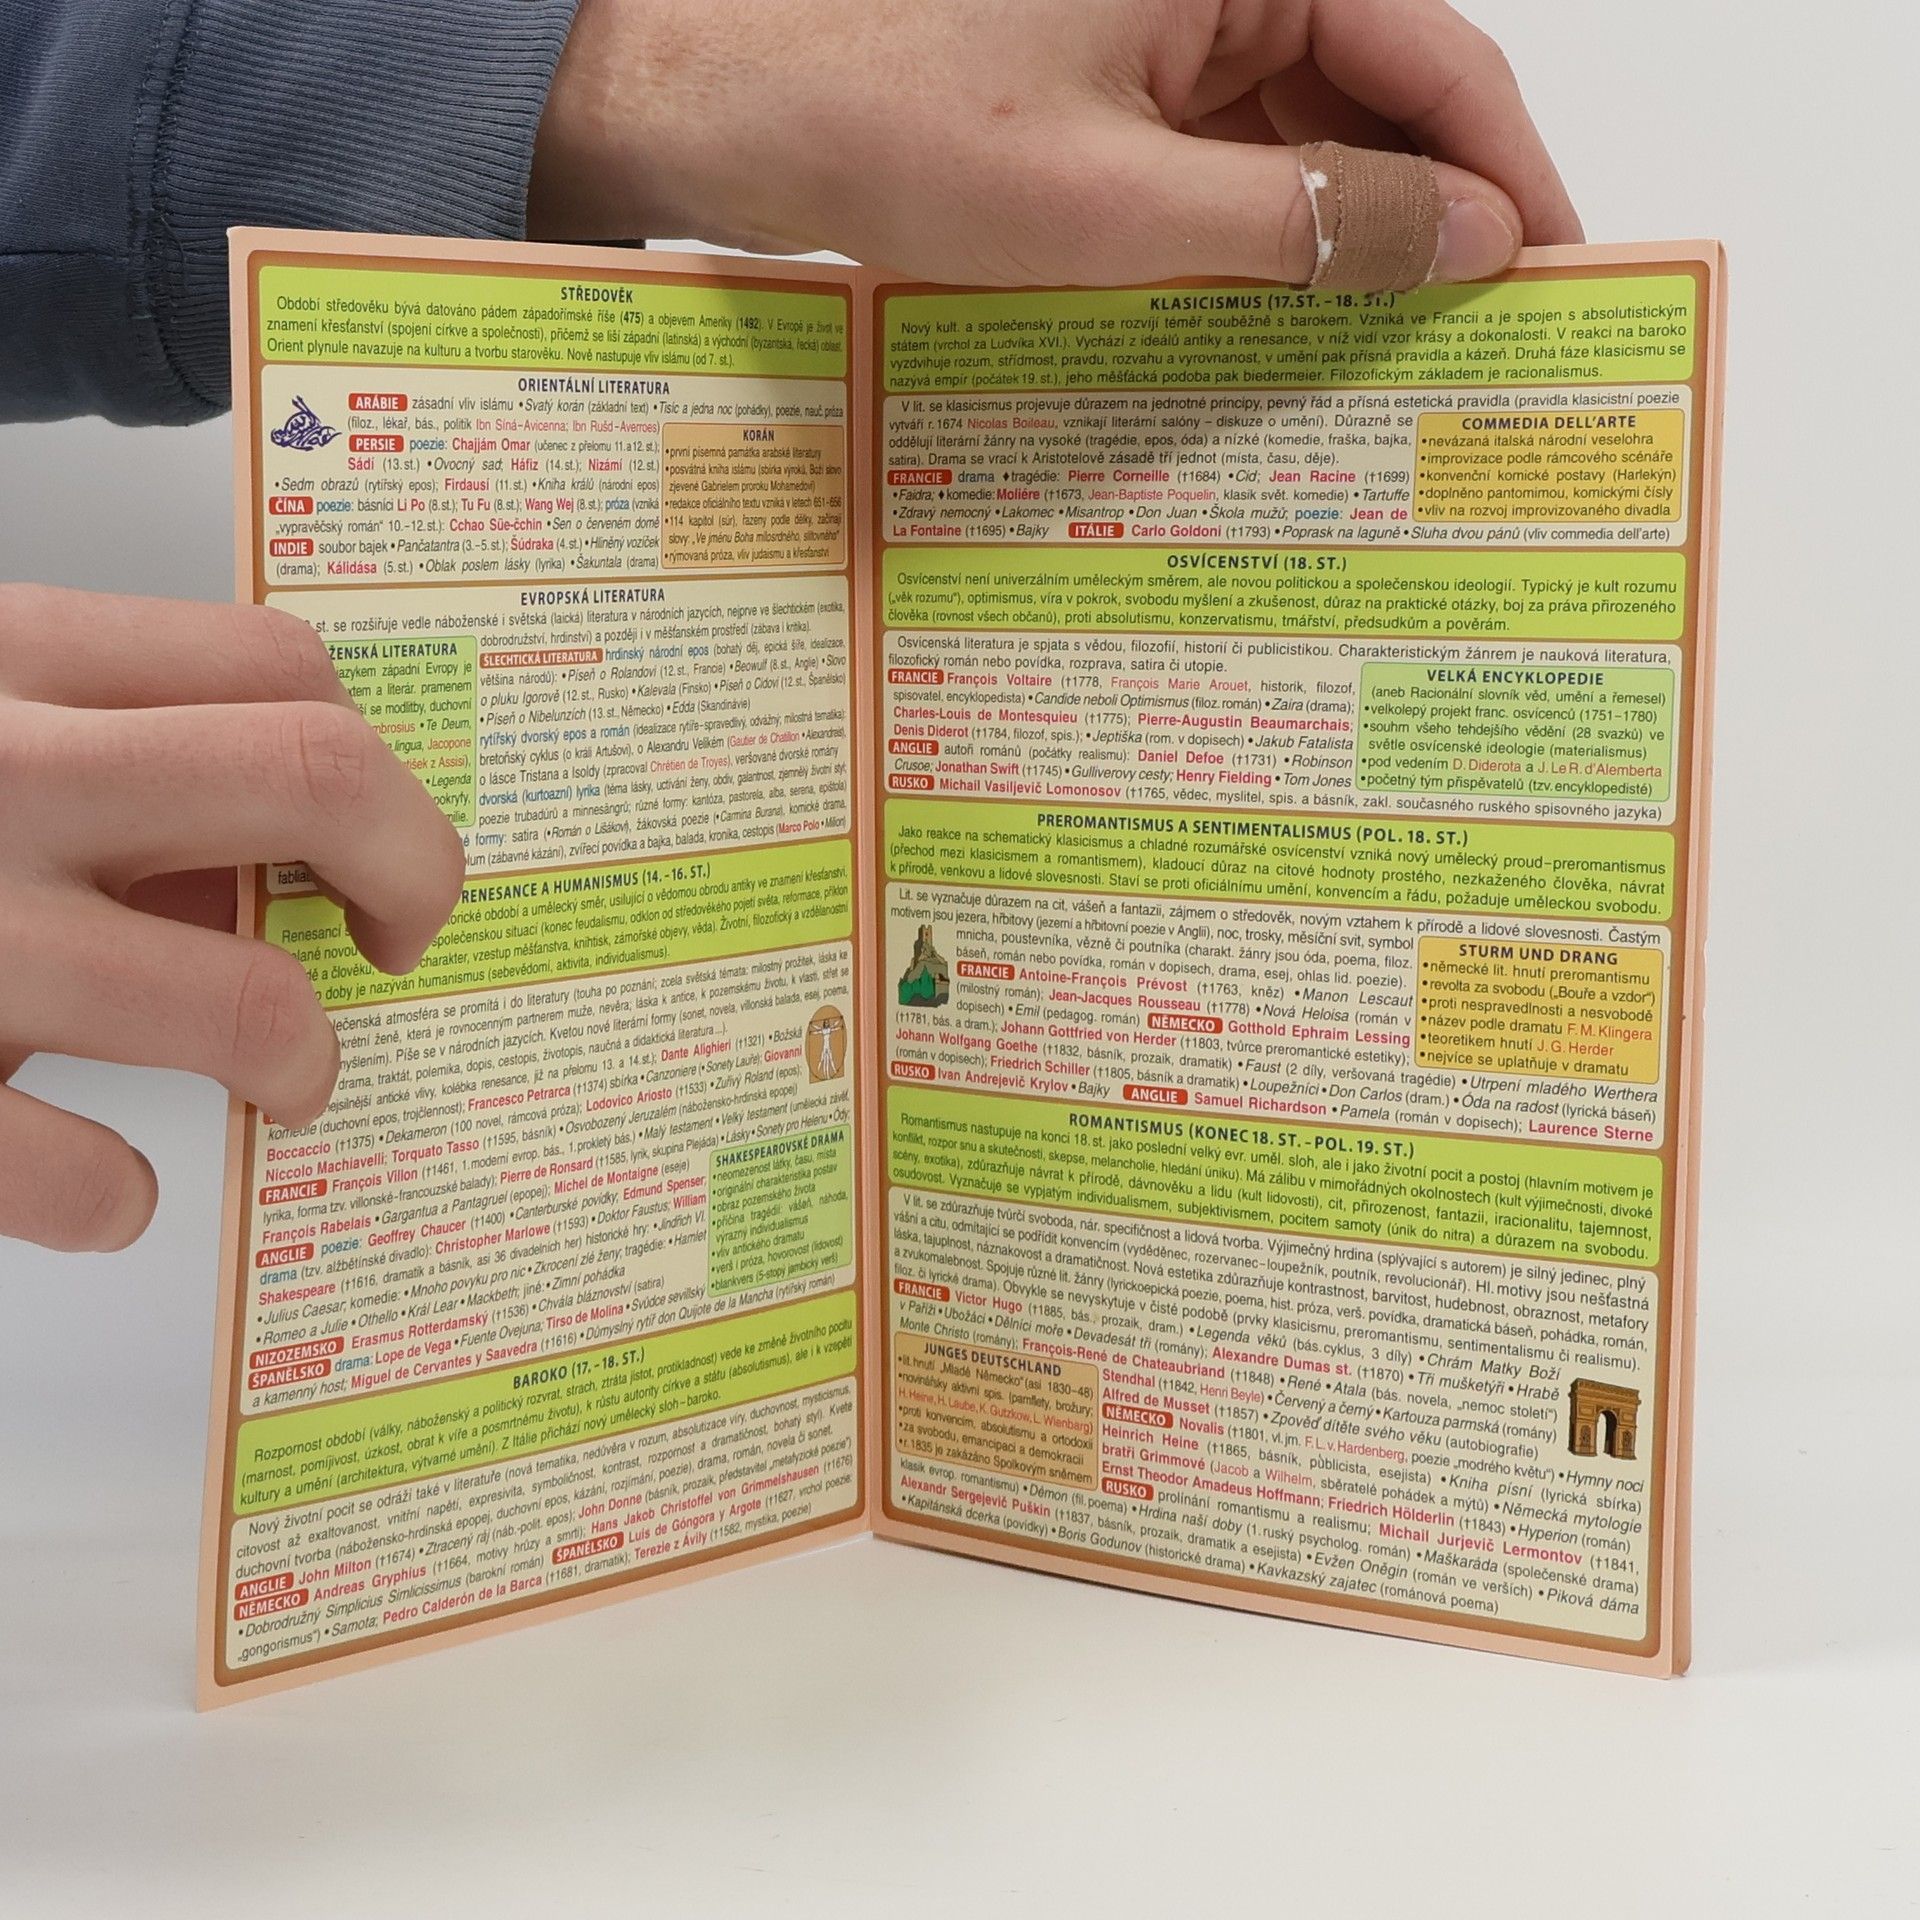 STŘEDOVĚK
Období středověku bývá datováno pádem západořímské říše (475) a objevem Ameriky (1492). V Evropě je život ve
znamení křesťanství (spojení církve a společnosti), přičemž se liší západní (latinská) a východní (byzantská, řecká) oblast.
Orient plynule navazuje na kulturu a tvorbu starověku. Nově nastupuje vliv islámu (od 7. st.).
ORIENTÁLNÍ LITERATURA
ARÁBIE zásadní vliv islámu •Svatý korán (základní text) •Tisíc a jedna noc (pohádky), poezie, nauč. próza
(filoz., lékař, bás., politik Ibn Síná-Avicenna; Ibn Rušd-Averroes)
PERSIE poezie: Chajjám Omar (učenec z přelomu 11.a 12. st.);
Sádí (13. st.) •Ovocný sad; Háfiz (14. st.); Nizámí (12. st.)
•Sedm obrazů (rytířský epos); Firdausí (11. st.) •Kniha králů (národní epos)
ČÍNA poezie: básníci Li Po (8. st.); Tu Fu (8. st.); Wang Wej (8. st.); próza (vzniká
„vypravěčský román“ 10.–12. st.): Cchao Süe-čchin •Sen o červeném domě
INDIE soubor bajek •Pančatantra (3.–5. st.); Šúdraka (4. st.) •Hliněný vozíček
(drama); Kálidása (5. st.) •Oblak poslem lásky (lyrika) •Šakuntala (drama)
KORÁN
•první písemná památka arabské literatury
•posvátná kniha islámu (sbírka výroků, Boží slovo
zjevené Gabrielem proroku Mohamedovi)
•redakce oficiálního textu vzniká v letech 651–656
•114 kapitol (súr), řazeny podle délky, začínají
slovy: „Ve jménu Boha milosrdného, slitovného“
•rýmovaná próza, vliv judaismu a křesťanství
EVROPSKÁ LITERATURA
st. se rozšiřuje vedle náboženské i světská (laická) literatura v národních jazycích, nejprve ve šlechtickém (exotika,
dobrodružství, hrdinství) a později i v měšťanském prostředí (zábava i kritika).
ŽENSKÁ LITERATURA
jazykem západní Evropy je
a literár. pramenem
se modlitby, duchovní
• Te Deum,
lingua, Jacopone
z Assisi),
• Legenda
pokryfy,
ŠLECHTICKÁ LITERATURA hrdinský národní epos (bohatý děj, epická šíře, idealizace,
většina národů): •Píseň o Rolandovi (12. st., Francie) •Beowulf (8. st., Anglie) •Slovo
o pluku Igorově (12. st., Rusko) •Kalevala (Finsko) •Píseň o Cidovi (12. st., Španělsko)
•Píseň o Nibelunzích (13. st., Německo) •Edda (Skandinávie)
rytířský dvorský epos a román (idealizace rytíře-spravedlivý, odvážný; milostná tematika):
bretoňský cyklus (o králi Artušovi), o Alexandru Velikém (Gautier de Chatillon •Alexandreis),
o lásce Tristana a Isoldy (zpracoval Chrétien de Troyes), veršované dvorské romány
dvorská (kurtoazní) lyrika (téma lásky, uctívání ženy, obdiv, galantnost, zjemnělý životní styl;
poezie trubadúrů a minnesängrů; různé formy: kantóza, pastorela, alba, serena, epištola)
formy: satira (•Román o Lišákovi), žákovská poezie (•Carmina Burana), komické drama,
(zábavné kázání), zvířecí povídka a bajka, balada, kronika, cestopis (Marco Polo •Milion)
RENESANCE A HUMANISMUS (14.–16. ST.)
Renesancí
období a umělecký směr, usilující o vědomou obrodu antiky ve znamení křesťanství,
novou společenskou situací (konec feudalismu, odklon od středověkého pojetí světa, reformace, příklon
a člověku, charakter, vzestup měšťanstva, knihtisk, zámořské objevy, věda). Životní, filozofický a vzdělanostní
doby je nazýván humanismus (sebevědomí, aktivita, individualismus).
atmosféra se promítá i do literatury (touha po poznání; zcela světská témata: milostný prožitek, láska ke
konkrétní ženě, která je rovnocenným partnerem muže, nevěra; láska k antice, k pozemskému životu, k vlasti, střet se
myšlením). Píše se v národních jazycích. Kvetou nové literární formy (sonet, novela, villonská balada, esej, poema,
drama, traktát, polemika, dopis, cestopis, životopis, naučná a didaktická literatura...).
nejsilnější antické vlivy, kolébka renesance, již na přelomu 13. a 14. st.); Dante Alighieri (†1321) •Božská
komedie (duchovní epos, trojčlennost); Francesco Petrarca (†1374) sbírka •Canzoniere (•Sonety Lauře); Giovanni
Boccaccio (†1375) •Dekameron (100 novel, rámcová próza); Lodovico Ariosto (†1533) •Zuřivý Roland (epos);
Niccolo Machiavelli; Torquato Tasso (†1595, básník) •Osvobozený Jeruzalém (nábožensko-hrdinská epopej)
FRANCIE François Villon (†1461, 1. moderní evrop. bás., 1. prokletý bás.) •Malý testament •Velký testament (umělecká závěť,
lyrika, forma tzv. villonské-francouzské balady); Pierre de Ronsard (†1585, lyrik, skupina Plejáda) •Lásky •Sonety pro Helenu •Ódy;
François Rabelais •Gargantua a Pantagruel (epopej); Michel de Montaigne (eseje)
ANGLIE poezie: Geoffrey Chaucer (†1400) •Canterburské povídky; Edmund Spenser;
drama (tzv. alžbětinské divadlo): Christopher Marlowe (†1593) •Doktor Faustus; William
Shakespeare (†1616, dramatik a básník, asi 36 divadelních her) historické hry: •Jindřich VI.
•Julius Caesar; komedie: •Mnoho povyku pro nic •Zkrocení zlé ženy; tragédie: •Hamlet
•Romeo a Julie •Othello •Král Lear •Macbeth; jiné: •Zimní pohádka
NIZOZEMSKO Erasmus Rotterdamský (†1536) •Chvála bláznovství (satira)
ŠPANĚLSKO drama: Lope de Vega •Fuente Ovejuna; Tirso de Molina •Svůdce sevillský
a kamenný host; Miguel de Cervantes y Saavedra (†1616) •Důmyslný rytíř don Quijote de la Mancha (rytířský román)
SHAKESPEAROVSKÉ DRAMA
•neomezenost látky, času, místa
•originální charakteristika postav
•obraz pozemského života
•příčina tragédií: vášeň, náhoda,
výrazný individualismus
•vliv antického dramatu
•verš i próza, hovorovost (lidovost)
•blankvers (5-stopý jambický verš)
BAROKO (17.–18. ST.)
Rozpornost období (války, náboženský a politický rozvrat, strach, ztráta jistot, protikladnost) vede ke změně životního pocitu
(marnost, pomíjivost, úzkost, obrat k víře a posmrtnému životu), k růstu autority církve a státu (absolutismus), ale i k vzepětí
kultury a umění (architektura, výtvarné umění). Z Itálie přichází nový umělecký sloh–baroko.
Nový životní pocit se odráží také v literatuře (nová tematika, nedůvěra v rozum, absolutizace víry, duchovnost, mysticismus,
citovost až exaltovanost, vnitřní napětí, expresivita, symboličnost, kontrast, rozpornost a dramatičnost, bohatý styl). Kvete
duchovní tvorba (nábožensko-hrdinská epopej, duchovní epos, kázání, rozjímání, poezie), drama, román, novela či sonet.
ANGLIE John Milton (†1674) •Ztracený ráj (náb.-polit. epos); John Donne (básník, prozaik, představitel „metafyzické poezie“)
NĚMECKO Andreas Gryphius (†1664, motivy hrůzy a smrti); Hans Jakob Christoffel von Grimmelshausen (†1676)
•Dobrodružný Simplicius Simplicissimus (barokní román) ŠPANĚLSKO Luis de Góngora y Argote (†1627, vrchol poezie:
„gongorismus“) •Samota; Pedro Calderón de la Barca (†1681, dramatik); Terezie z Ávily (†1582, mystika, poezie)
KLASICISMUS (17.ST.–18. ST.)
Nový kult. a společenský proud se rozvíjí téměř souběžně s barokem. Vzniká ve Francii a je spojen s absolutistickým
státem (vrchol za Ludvíka XVI.). Vychází z ideálů antiky a renesance, v níž vidí vzor krásy a dokonalosti. V reakci na baroko
vyzdvihuje rozum, střídmost, pravdu, rozvahu a vyrovnanost, v umění pak přísná pravidla a kázeň. Druhá fáze klasicismu se
nazývá empír (počátek 19. st.), jeho měšťácká podoba pak biedermeier. Filozofickým základem je racionalismus.
V lit. se klasicismus projevuje důrazem na jednotné principy, pevný řád a přísná estetická pravidla (pravidla klasicistní poezie
vytváří r. 1674 Nicolas Boileau, vznikají literární salóny – diskuze o umění). Důrazně se
oddělují literární žánry na vysoké (tragédie, epos, óda) a nízké (komedie, fraška, bajka,
satira). Drama se vrací k Aristotelově zásadě tří jednot (místa, času, děje).
FRANCIE drama ♦tragédie: Pierre Corneille (†1684) •Cid; Jean Racine (†1699)
•Faidra; ♦komedie: Moliére (†1673, Jean-Baptiste Poquelin, klasik svět. komedie) •Tartuffe
•Zdravý nemocný •Lakomec •Misantrop •Don Juan •Škola mužů; poezie: Jean de
La Fontaine (†1695) •Bajky ITÁLIE Carlo Goldoni (†1793) •Poprask na laguně •Sluha dvou pánů (vliv commedia dell'arte)
COMMEDIA DELL'ARTE
•nevázaná italská národní veselohra
•improvizace podle rámcového scénáře
•konvenční komické postavy (Harlekýn)
•doplněno pantomimou, komickými čísly
•vliv na rozvoj improvizovaného divadla
OSVÍCENSTVÍ (18. ST.)
Osvícenství není univerzálním uměleckým směrem, ale novou politickou a společenskou ideologií. Typický je kult rozumu
(„věk rozumu“), optimismus, víra v pokrok, svobodu myšlení a zkušenost, důraz na praktické otázky, boj za práva přirozeného
člověka (rovnost všech občanů), proti absolutismu, konzervatismu, tmářství, předsudkům a pověrám.
Osvícenská literatura je spjata s vědou, filozofií, historií či publicistikou. Charakteristickým žánrem je nauková literatura,
filozofický román nebo povídka, rozprava, satira či utopie.
FRANCIE François Voltaire (†1778, François Marie Arouet, historik, filozof,
spisovatel, encyklopedista) •Candide neboli Optimismus (filoz. román) •Zaira (drama);
Charles-Louis de Montesquieu (†1775); Pierre-Augustin Beaumarchais;
Denis Diderot (†1784, filozof, spis.); •Jeptiška (rom. v dopisech) •Jakub Fatalista
ANGLIE autoři románů (počátky realismu): Daniel Defoe (†1731) •Robinson
Crusoe; Jonathan Swift (†1745) •Gulliverovy cesty; Henry Fielding •Tom Jones
RUSKO Michail Vasiljevič Lomonosov (†1765, vědec, myslitel, spis. a básník, zakl. současného ruského spisovného jazyka)
VELKÁ ENCYKLOPEDIE
(aneb Racionální slovník věd, umění a řemesel)
•velkolepý projekt franc. osvícenců (1751–1780)
•souhrn všeho tehdejšího vědění (28 svazků) ve
světle osvícenské ideologie (materialismus)
•pod vedením D. Diderota a J. Le R. d'Alemberta
•početný tým přispěvatelů (tzv. encyklopedisté)
PREROMANTISMUS A SENTIMENTALISMUS (POL. 18. ST.)
Jako reakce na schematický klasicismus a chladné rozumářské osvícenství vzniká nový umělecký proud–preromantismus
(přechod mezi klasicismem a romantismem), kladoucí důraz na citové hodnoty prostého, nezkaženého člověka, návrat
k přírodě, venkovu a lidové slovesnosti. Staví se proti oficiálnímu umění, konvencím a řádu, požaduje uměleckou svobodu.
Lit. se vyznačuje důrazem na cit, vášeň a fantazii, zájmem o středověk, novým vztahem k přírodě a lidové slovesnosti. Častým
motivem jsou jezera, hřbitovy (jezerní a hřbitovní poezie v Anglii), noc, trosky, měsíční svit, symbol
mnicha, poustevníka, vězně či poutníka (charakt. žánry jsou óda, poema, filoz.
báseň, román nebo povídka, román v dopisech, drama, esej, ohlas lid. poezie).
FRANCIE Antoine-François Prévost (†1763, kněz) •Manon Lescaut
(milostný román); Jean-Jacques Rousseau (†1778) •Nová Heloisa (román v
dopisech) •Emil (pedagog. román) NĚMECKO Gotthold Ephraim Lessing
(†1781, bás. a dram.); Johann Gottfried von Herder (†1803, tvůrce preromantické estetiky);
Johann Wolfgang Goethe (†1832, básník, prozaik, dramatik) •Faust (2 díly, veršovaná tragédie) •Utrpení mladého Werthera
(román v dopisech); Friedrich Schiller (†1805, básník a dramatik) •Loupežníci •Don Carlos (dram.) •Óda na radost (lyrická báseň)
RUSKO Ivan Andrejevič Krylov •Bajky ANGLIE Samuel Richardson •Pamela (román v dopisech); Laurence Sterne
STURM UND DRANG
•německé lit. hnutí preromantismu
•revolta za svobodu („Bouře a vzdor“)
•proti nespravedlnosti a nesvobodě
•název podle dramatu F. M. Klingera
•teoretikem hnutí J. G. Herder
•nejvíce se uplatňuje v dramatu
ROMANTISMUS (KONEC 18. ST.–POL. 19. ST.)
Romantismus nastupuje na konci 18. st. jako poslední velký evr. uměl. sloh, ale i jako životní pocit a postoj (hlavním motivem je
konflikt, rozpor snu a skutečnosti, skepse, melancholie, hledání úniku). Má zálibu v mimořádných okolnostech (kult výjimečnosti, divoké
scény, exotika), zdůrazňuje návrat k přírodě, dávnověku a lidu (kult lidovosti), cit, přirozenost, fantazii, iracionalitu, tajemnost,
osudovost. Vyznačuje se vypjatým individualismem, subjektivismem, pocitem samoty (únik do nitra) a důrazem na svobodu.
V lit. se zdůrazňuje tvůrčí svoboda, nár. specifičnost a lidová tvorba. Výjimečný hrdina (splývající s autorem) je silný jedinec, plný
vášní a citu, odmítající se podřídit konvencím (vyděděnec, rozervanec–loupežník, poutník, revolucionář). Hl. motivy jsou nešťastná
láska, tajuplnost, náznakovost a dramatičnost. Nová estetika zdůrazňuje kontrastnost, barvitost, hudebnost, obraznost, metafory
a zvukomalebnost. Spojuje různé lit. žánry (lyrickoepická poezie, poema, hist. próza, verš. povídka, dramatická báseň, pohádka, román,
filoz. či lyrické drama). Obvykle se nevyskytuje v čisté podobě (prvky klasicismu, preromantismu, sentimentalismu či realismu).
FRANCIE Victor Hugo (†1885, bás., prozaik, dram.) •Legenda věků (bás. cyklus, 3 díly) •Chrám Matky Boží
v Paříži •Ubožáci •Dělníci moře •Devadesát tři (romány); Alexandre Dumas st. (†1870) •Tři mušketýři •Hrabě
Monte Christo (romány); François-René de Chateaubriand (†1848) •René •Atala (bás. novela, „nemoc století“)
Stendhal (†1842, Henri Beyle) •Červený a černý •Kartouza parmská (romány)
Alfred de Musset (†1857) •Zpověď dítěte svého věku (autobiografie)
NĚMECKO Novalis (†1801, vl. jm. F. L. v. Hardenberg, poezie „modrého květu“) •Hymny noci
Heinrich Heine (†1865, básník, publicista, esejista) •Kniha písní (lyrická sbírka)
bratři Grimmové (Jacob a Wilhelm, sběratelé pohádek a mýtů) •Německá mytologie
Ernst Theodor Amadeus Hoffmann; Friedrich Hölderlin (†1843) •Hyperion (román)
RUSKO prolínání romantismu a realismu; Michail Jurjevič Lermontov (†1841,
klasik evrop. romantismu) •Démon (fil. poema) •Hrdina naší doby (1. ruský psycholog. román) •Maškaráda (společenské drama)
Alexandr Sergejevič Puškin (†1837, básník, prozaik, dramatik a esejista) •Evžen Oněgin (román ve verších) •Piková dáma
•Kapitánská dcerka (povídky) •Boris Godunov (historické drama) •Kavkazský zajatec (románová poema)
JUNGES DEUTSCHLAND
•lit. hnutí „Mladé Německo“ (asi 1830–48)
•novinářsky aktivní spis. (pamflety, brožury;
H. Heine, H. Laube, K. Gutzkow, L. Wienbarg)
•proti konvencím, absolutismu a ortodoxii
•za svobodu, emancipaci a demokracii
•r. 1835 je zakázáno Spolkovým sněmem